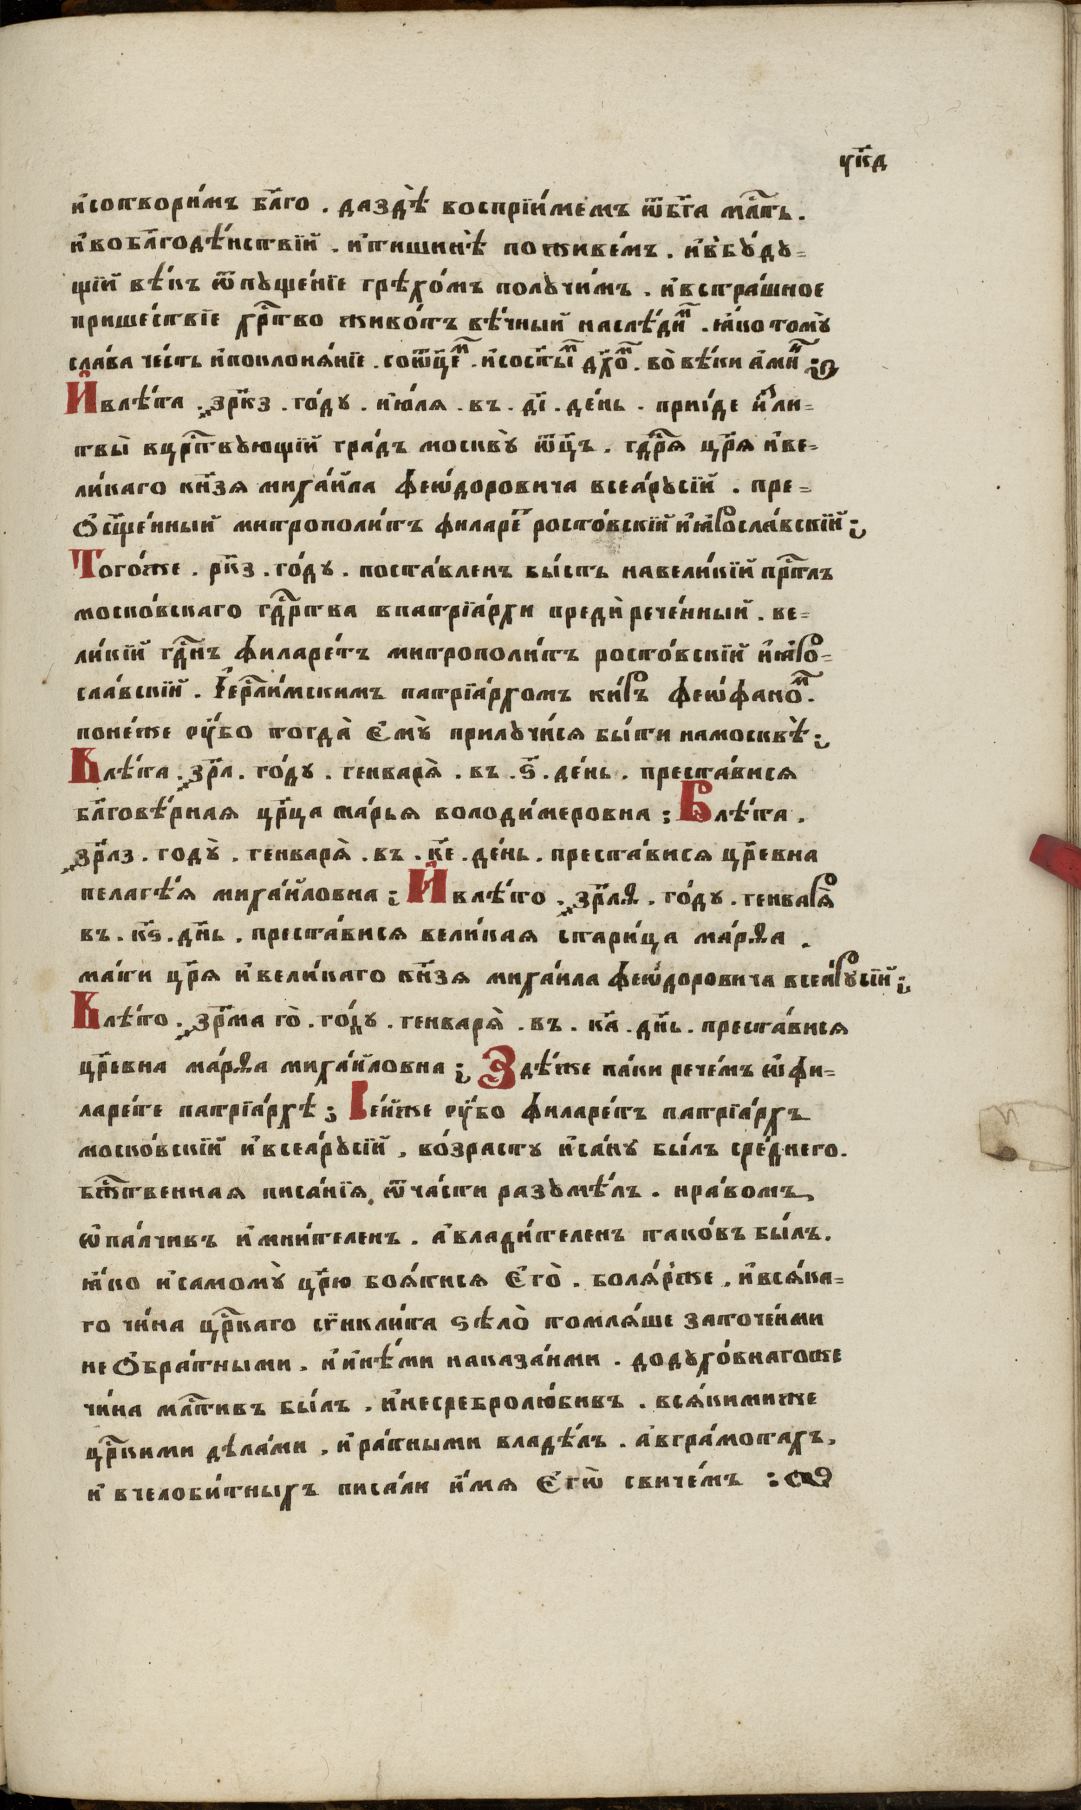 ук҃д
и҆сотвори́мъ бл҃го . даздѣ̀ воспрїи́мемъ ѿбг҃а мл҃ть .
и҆вобл҃годѣ́нствїй . и҆тишинѣ̀ поживе́мъ . и҆вбꙋ́дꙋ=
щїй вѣ́къ ѿпꙋще́нїе грѣхо́мъ полꙋчи́мъ . и҆встра́шное
прише́ствїе хрⷭ҇тво живо́тъ вѣ́чный наслѣ́димⷨ . ꙗ҆́ко томꙋ̀
сла́ва че́сть и҆поклоня́нїе . соѿц҃емⷨ . и҆сост҃ымⷨ дх҃омⷨ . во̀ вѣ́ки а҆ми́нⷩ ;
И҆ влѣ́та . ҂зр҃кз . го́дꙋ . и҆ю́ля . въ . д҃і . де́нь . прїи́де и҆зⷥли=
твы̀ вцрⷭ҇твꙋющїй гра́дъ москвꙋ̀ ѿц҃ъ . гдⷭ҇рѧ цр҃ѧ и҆ве=
ли́каго кн҃зя миха́йла ѳеѡ́доровича всеа́рꙋсїй . пре=
ѡ҆сщ҃е́нный митрополи́тъ филаре́тⷮ росто́вскїй и҆ꙗ҆росла́вскїй ;
Того́же . рк҃з . го́дꙋ . поста́вленъ бы́сть навели́кїй прⷭ҇тлъ
моско́вскаго гдⷭ҇рства впатрїа́рхи предѝ рече́нный . ве=
ли́кїй гдⷭ҇нъ филаре́тъ митрополи́тъ росто́вскїй и҆ꙗ҆ро=
сла́вскїй . І҆ерⷭ҇ли́мскимъ патрїа́рхомъ ки́ръ ѳеѡ́фаномⷨ .
поне́же ᲂу҆́бо тогда̀ є҆мꙋ̀ прилꙋчи́ся бы́ти намосквѣ̀ ;
В лѣ́та . ҂зр҃л . го́дꙋ . генваря̀ . въ . ѕ҃ . де́нь . преста́вися
бл҃говѣ́рная цр҃ца ма́рья володи́меровна ; В лѣ́та .
҂зр҃лз . годꙋ̀ . генваря̀ . въ . к҃е . де́нь . преста́вися цр҃евна
пелаге́я миха́йловна ; И҆ влѣ́то . ҂зр҃лѳ . го́дꙋ . генваря̀
въ . к҃ѕ . дн҃ь . преста́вися вели́кая ста́рица ма́рѳа .
ма́ти цр҃я и҆вели́каго кн҃зя миха́ила ѳеѡ́доровича всеа́рꙋсїй ;
В лѣ́то . ҂зр҃ма го̀ . го́дꙋ . генваря̀ . въ . к҃а . дн҃ь . преста́вися
цр҃евна ма́рѳа миха́йловна ; З дѣ́же па́ки рече́мъ ѡ҆фи=
ларе́те патрїа́рхѣ ; С е́йже ᲂу҆́бо филаре́тъ патрїа́рхъ
моско́вскїй и҆всеа́рꙋсїй , во́зрастꙋ и҆са́нꙋ бы́лъ сре́днего .
бжⷭ҇твенная писа́нїя , ѿча́сти разꙋмѣ́лъ . нра́вомъ ,
ѡ҆па́лчивъ и҆мни́теленъ . а҆влади́теленъ тако́въ бы́лъ .
ꙗ҆́ко и҆самомꙋ̀ цр҃ю боя́тися є҆го̀ . боля́рже , и҆вся́ка=
го чи́на црⷭ҇каго сѷнкли́та ѕѣло̀ томля́ше заточе́ньми
не ѡ҆бра́тными . и҆ и҆нѣ́ми наказа́нми . додꙋхо́внагоже
чи́на млⷭ҇тивъ бы́лъ , и҆несребролю́бивъ . вся́кимиже
црⷭ҇кими дѣла́ми , и҆ра́тными владѣ́лъ . а҆вгра́мотахъ ,
и҆ вчелоби́тныхъ писа́ли и҆́мя є҆гѡ̀ свиче́мъ :